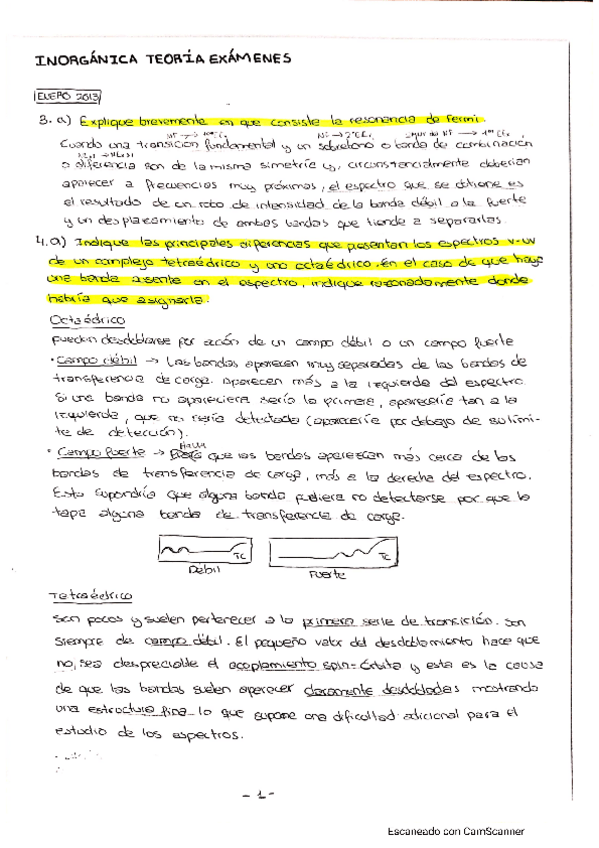 INORGÁNICA TEORÍA EXÁMENES
ENERO 2013
3. a) Explique brevemente en que consiste la resonancia de Fermi.
Cuando una transición fundamental y un sobretono o banda de combinación
o diferencia son de la misma simetría y, circunstancialmente deberían
aparecer a frecuencias muy próximas, el espectro que se obtiene es
el resultado de un robo de intensidad de la banda débil a la fuerte
y un desplazamiento de ambas bandas que tiende a separarlas.
4. a) Indique las principales diferencias que presentan los espectros V-UV
de un complejo tetraédrico y uno octaédrico. En el caso de que haya
una banda ausente en el espectro, indique razonadamente donde
habría que asignarla.
Octaédrico
Pueden desdoblarse por acción de un campo débil o un campo fuerte
· Campo débil → Las bandas aparecen muy separadas de las bandas de
transferencia de carga. Aparecen más a la izquierda del espectro.
Si una banda no apareciera sería la primera, aparecería tan a la
izquierda, que no sería detectada (aparecería por debajo de su lími-
te de detección).
· Campo fuerte → Hará que las bandas aparezcan más cerca de las
bandas de transferencia de carga, más a la derecha del espectro.
Esto supondría que alguna banda pudiera no detectarse por que la
tape alguna banda de transferencia de carga.
TC TC
Débil Fuerte
Tetraédrico
Son pocos y suelen pertenecer a la primera serie de transición. Son
siempre de campo débil. El pequeño valor del desdoblamiento hace que
no sea despreciable el acoplamiento spin-órbita y esta es la causa
de que las bandas suelen aparecer claramente desdobladas mostrando
una estructura fina lo que supone una dificultad adicional para el
estudio de los espectros.
- 1 -
Escaneado con CamScanner